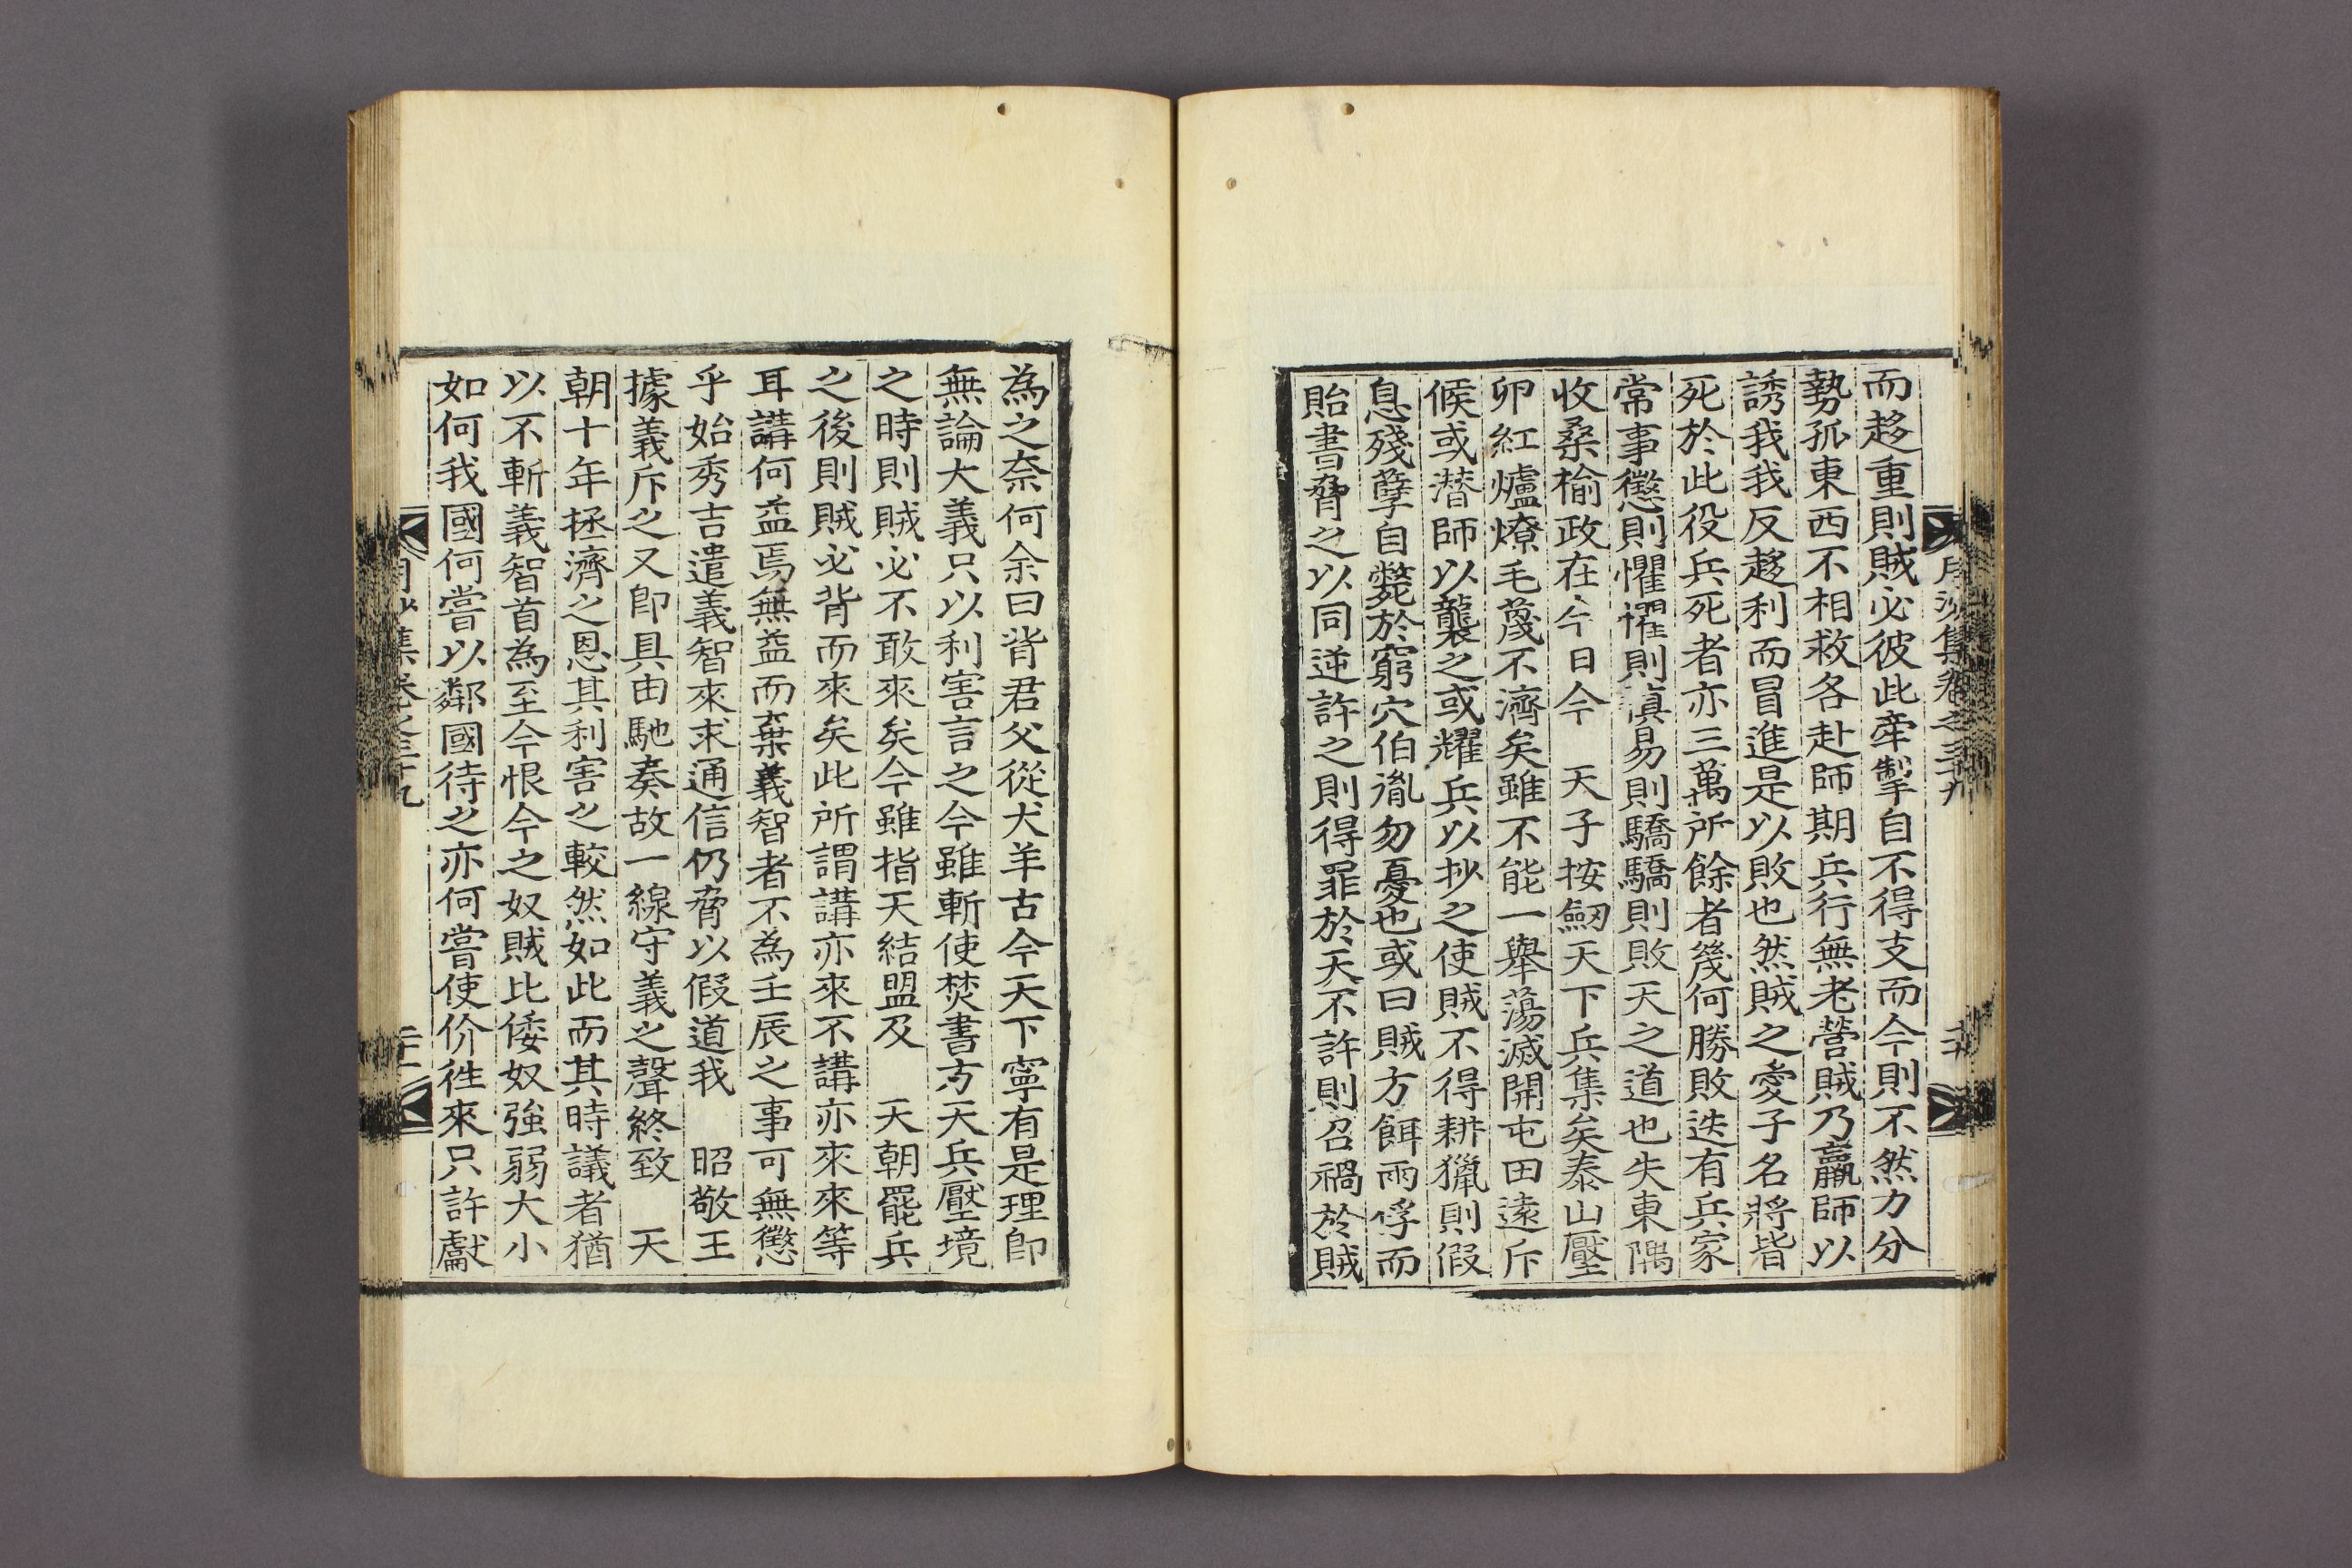 而趍重則賊必彼此牽掣自不得支而今則不然力分
勢孤東西不相救各赴師期兵行無老營賊乃羸師以
誘我我反趍利而冒進是以敗也然賊之愛子名將皆
死於此役兵死者亦三萬所餘者幾何勝敗迭有兵家
常事懲則懼懼則愼易則驕驕則敗天之道也失東隅
收桑楡政在今日今 天子按劒天下兵集矣泰山壓
卵紅爐燎毛蔑不濟矣雖不能一擧蕩滅開屯田遠斥
候或潛師以襲之或耀兵以抄之使賊不得耕獵則假
息殘孽自斃於窮穴伯胤勿憂也或曰賊方餌雨俘而
貽書脅之以同逆許之則得罪於天不許則召禍於賊
月沙集卷之三十九
二十
為之奈何余曰背君父從犬羊古今天下寧有是理卽
無論大義只以利害言之今雖斬使焚書方天兵壓境
之時則賊必不敢來矣今雖指天結盟及 天朝罷兵
之後則賊必背而來矣此所謂講亦來不講亦來來等
耳講何益焉無益而棄義智者不為壬辰之事可無懲
乎始秀吉遣義智來求通信仍脅以假道我 昭敬王
據義斥之又卽具由馳奏故一線守義之聲終致 天
朝十年拯濟之恩其利害之較然如此而其時議者猶
以不斬義智首為至今恨今之奴賊比倭奴強弱大小
如何我國何嘗以鄰國待之亦何嘗使价徃來只許獻
月沙集卷之三十九
二十一